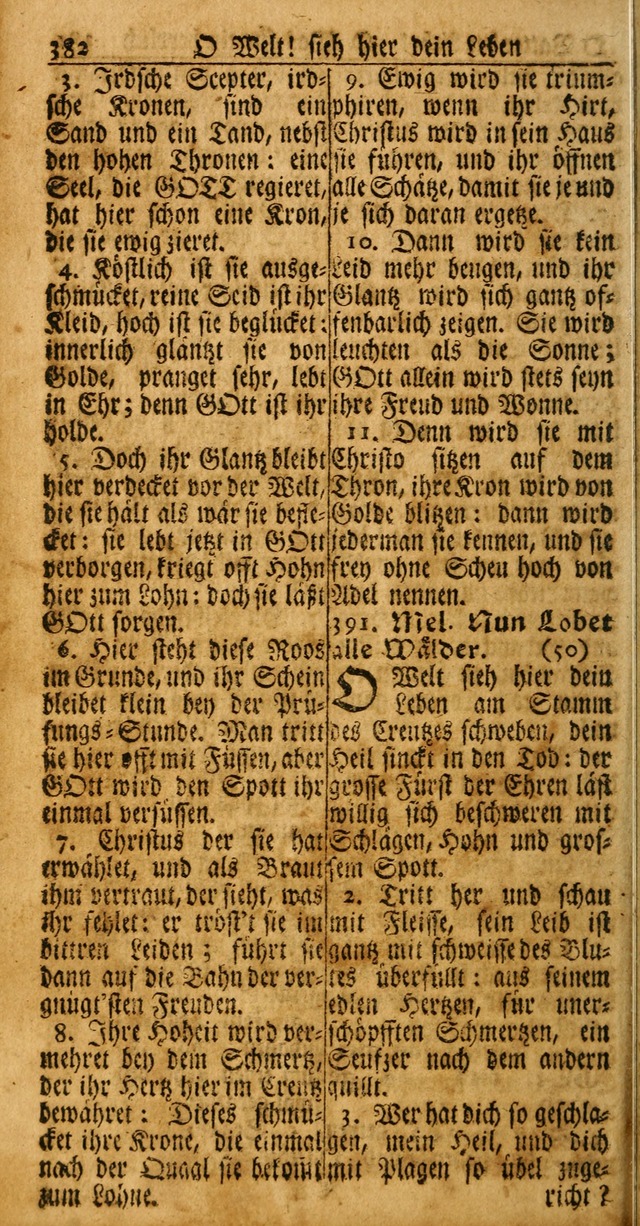 382 O Welt! sieh hier dein Leben
3. Irdsche Scepter, ird-
sche Kronen, sind ein
Sand und ein Tand, nebst
den hohen Thronen: eine
Seel, die GOTT regieret,
hat hier schon eine Kron,
die sie ewig zieret.
4. Köstlich ist sie ausge-
schmücket, reine Seid ist ihr
Kleid, hoch ist sie beglücket:
innerlich gläntzt sie von
Golde, pranget sehr, lebt
in Ehr; denn GOtt ist ihr
holde.
5. Doch ihr Glantz bleibt
hier verdecket vor der Welt,
die sie hält als wär sie befle-
cket: sie lebt jetzt in GOtt
verborgen, kriegt offt Hohn
hier zum Lohn: doch sie läßt
GOtt sorgen.
6. Hier steht diese Roos
im Grunde, und ihr Schein
bleibet klein bey der Prü-
fungs-Stunde. Man tritt
sie hier offt mit Füssen, aber
GOtt wird den Spott ihr
einmal versüssen.
7. Christus der sie hat
erwählet, und als Braut
ihm vertraut, der sieht, was
ihr fehlet: er tröst't sie im
bittren Leiden; führt sie
dann auf die Bahn der ver-
gnügt'sten Freuden.
8. Ihre Hoheit wird ver-
mehret bey dem Schmertz,
der ihr Hertz hier im Creutz
bewähret: Dieses schmü-
cket ihre Krone, die einmal
nach der Quaal sie bekomt
zum Lohne.
9. Ewig wird sie trium-
phiren, wenn ihr Hirt,
Christus wird in sein Haus
sie führen, und ihr öffnen
alle Schätze, damit sie je und
je sich daran ergetze.
10. Dann wird sie kein
Leid mehr beugen, und ihr
Glantz wird sich gantz of-
fenbarlich zeigen. Sie wird
leuchten als die Sonne;
GOtt allein wird stets seyn
ihre Freud und Wonne.
11. Denn wird sie mit
Christo sitzen auf dem
Thron, ihre Kron wird von
Golde blitzen: dann wird
jederman sie kennen, und sie
frey ohne Scheu hoch von
Adel nennen.
391. Mel. Nun Lobet
alle Wälder. (50)
O Welt sieh hier dein
Leben am Stamm
des Creutzes schweben, dein
Heil sinckt in den Tod: der
grosse Fürst der Ehren läst
willig sich beschweren mit
Schlägen, Hohn und gros-
sem Spott.
2. Tritt her und schau
mit Fleisse, sein Leib ist
gantz mit schweisse des Blu-
tes überfüllt: aus seinem
edlen Hertzen, für uner-
schöpfften Schmertzen, ein
Seufzer nach dem andern
quillt.
3. Wer hat dich so geschla-
gen, mein Heil, und dich
mit Plagen so übel zuge-
richt?